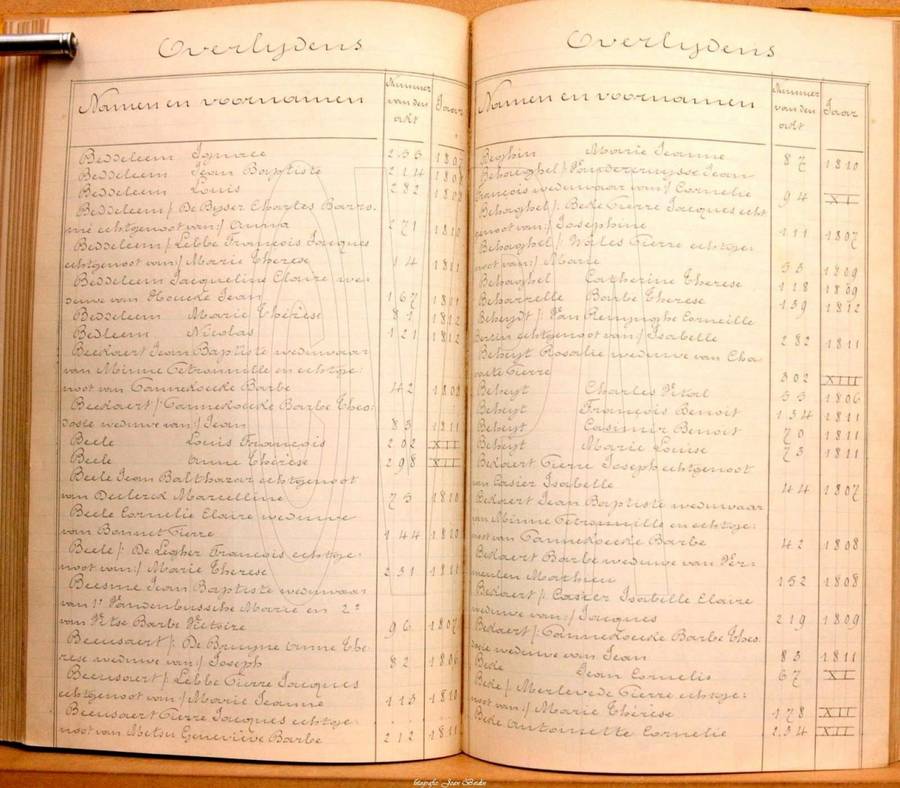 Overlydens
Namen en voornamen
Nummer
van den
akt
Jaar
Beddeleem Ignace 255 1807
Beddeleem Jean Baptiste 214 1808
Beddeleem Louis 282 1808
Beddeleem /: De Busser Charles Barro-
mé echtgenoot van :/ Anna 271 1810
Beddeleem /: Lebbe François Jacques
echtgenoot van :/ Marie Therese 14 1811
Beddeleem Jacqueline Claire we-
duwe van Houcke Jean 167 1811
Beddeleem Marie Thérèse 81 1812
Bedleem Nicolas 121 1812
Beekaert Jean Baptiste weduwaar
van Minne Petronnille en echtge-
noot van Pannekoecke Barbe 42 1808
Beekaert /: Pannekoecke Barbe Theo-
dosie weduwe van :/ Jean 83 1811
Beele Louis François 202 XII
Beele Anne Thérèse 298 XII
Beele Jean Balthazar echtgenoot
van Declerck Marcelline 75 1810
Beele Cornelie Claire weduwe
van Bonnet Pierre 144 1810
Beele /: De Legher François echtge-
noot van :/ Marie Therese 231 1811
Beesme Jean Baptiste weduwaar
van 1° Vandenbussche Marie en 2°
van Pitse Barbe Victoire 96 1807
Beeusaert /: De Bruyne Anne The-
rese weduwe van :/ Joseph 82 1806
Beeusaert /: Lebbe Pierre Jacques
echtgenoot van :/ Marie Jeanne 113 1810
Beeusaert Pierre Jacques echtge-
noot van Metsu Geneviève Barbe 212 1811
Overlydens
Namen en voornamen
Nummer
van den
akt
Jaar
Beghin Marie Jeanne 87 1810
Behaeghel /: Vandezeruysse Jean
François weduwaar van :/ Cornelie 94 XI
Behaeghel /: Beke Pierre Jacques echt
genoot van :/ Josephine 111 1807
Behaeghel /: Wales Pierre echtge-
noot van :/ Marie 55 1809
Behaeghel Catherine Therese 118 1809
Beharrelle Barbe Therese 159 1812
Beheydt /: Van Remynghe Corneille
echtgenoot van :/ Isabelle 282 1811
Beheyt Rosalie weduwe van
Pierre 302 XIII
Beheyt Charles Vital 55 1806
Beheyt François Benoit 134 1811
Beheyt Casimir Benoit 70 1811
Beheyt Marie Louise 73 1811
Bekaert Pierre Joseph echtgenoot
van Casier Isabelle 44 1807
Bekaert Jean Baptiste weduwaar
van Minne Petronnille en echtge-
noot van Pannekoecke Barbe 42 1808
Bekaert Barbe weduwe van Ver-
meulen Mathieu 152 1808
Bekaert /: Casier Isabelle Claire
weduwe van :/ Jacques 219 1809
Bekaert /: Pannekoecke Barbe Theo-
dosie weduwe van Jean 83 1811
Beke Jean Cornelis 67 XI
Beke /: Merlevede Pierre echtge-
noot van :/ Marie Thérèse 178 XII
Beke Antoinette Cornelie 234 XII
fotografie: Jean Beddin